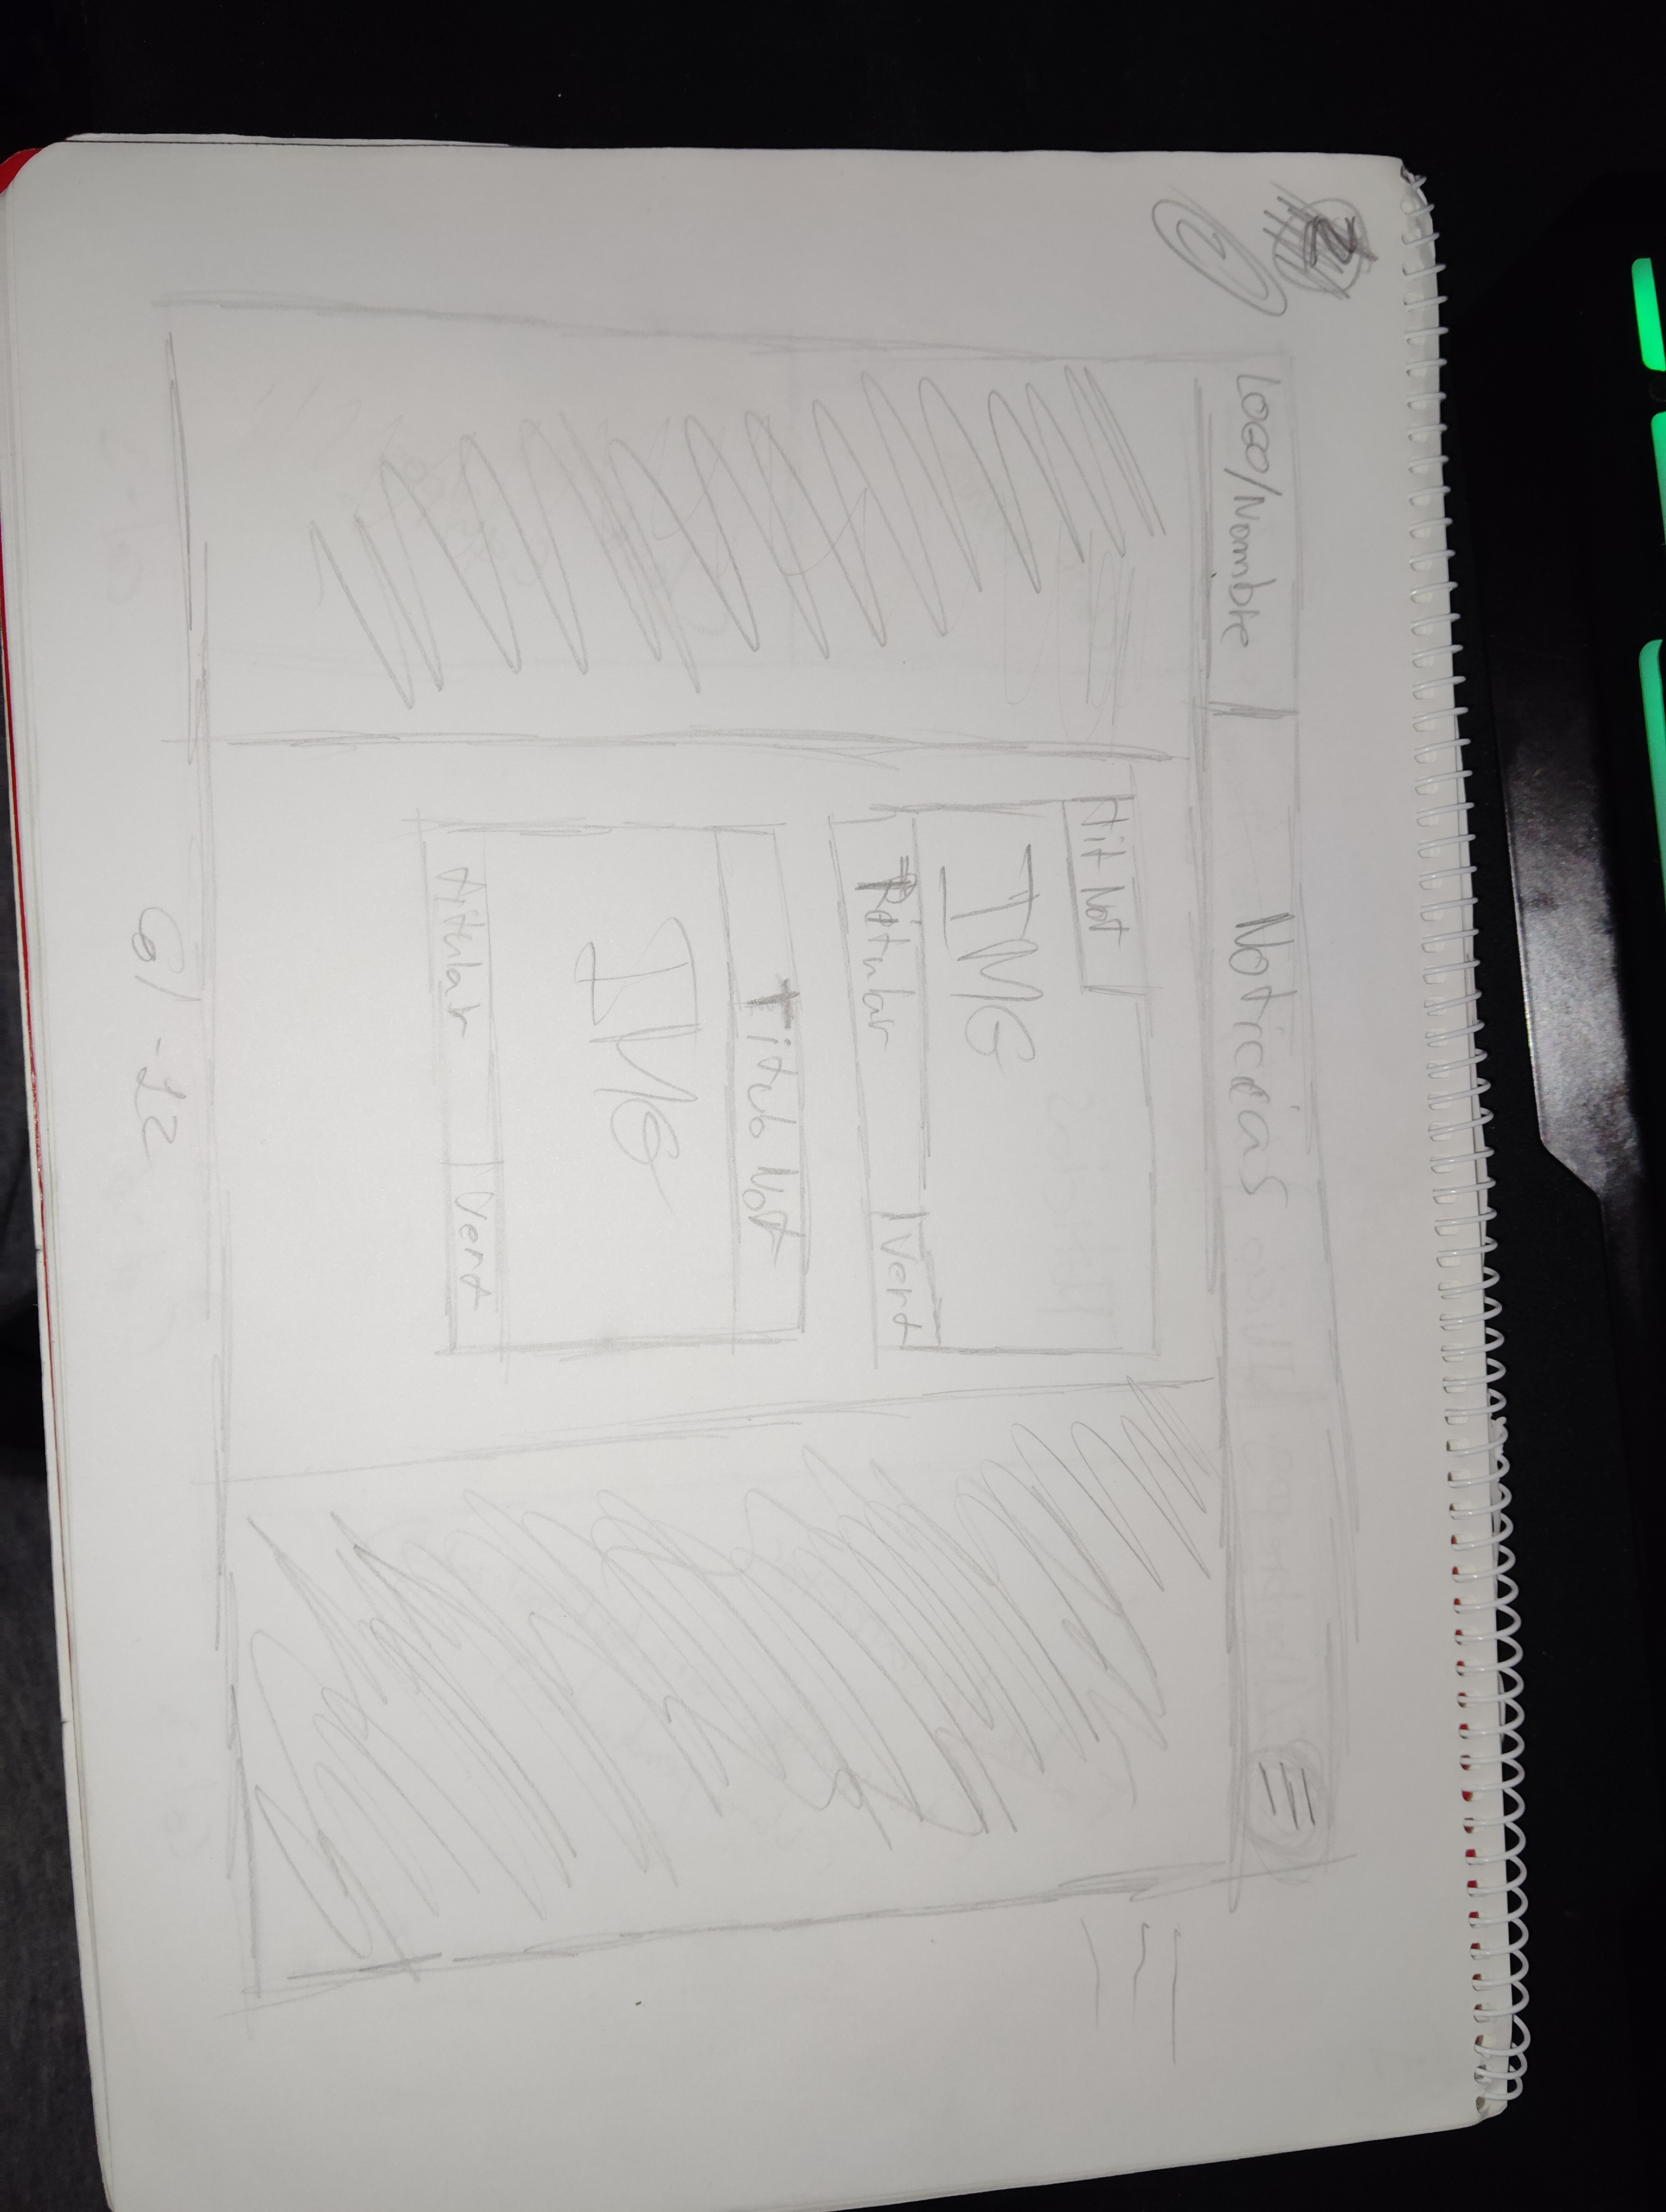 2
2
LOGO/Nombre
Noticias
tit Not
IMG
Titular
Ver+
Titulo Not
IMG
titular
Ver+
Col -12